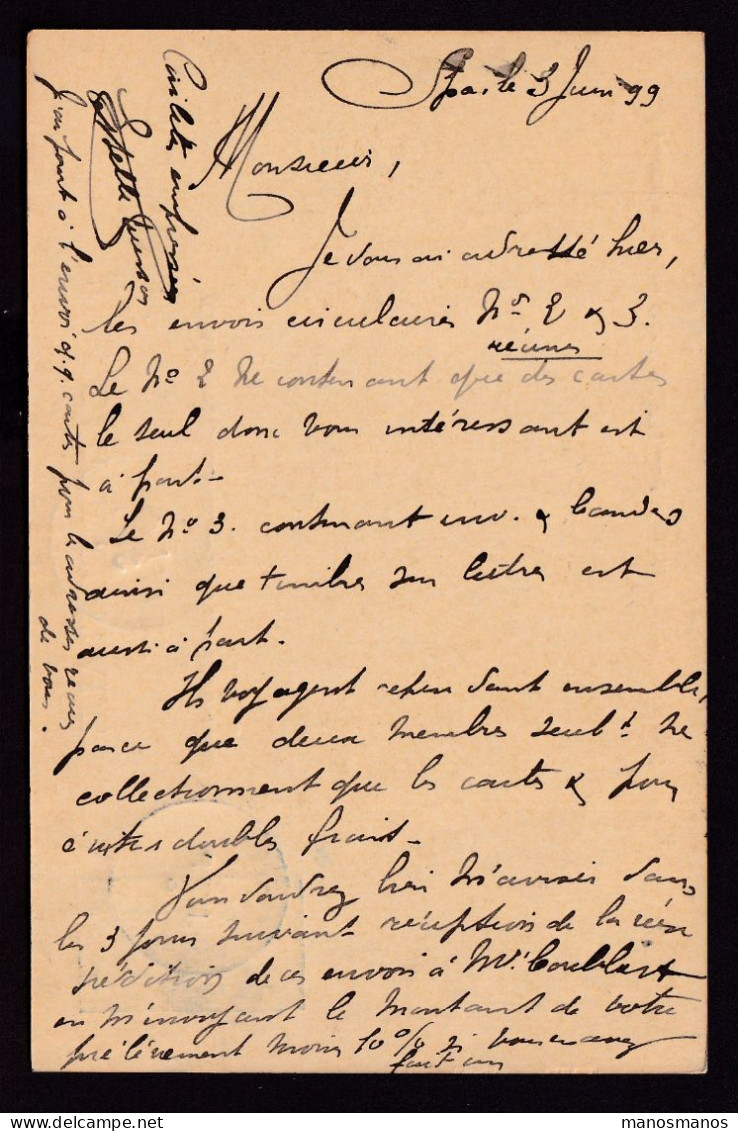 Spa, le 3 Juin 99
Monsieur,
Je vous ai adressé hier,
les envois circulaires Nos 2 & 3.
réunis
Le No 2 ne contenant que des cartes
le seul donc vous intéressant est
à part.
Le No 3. contenant env. & bandes
ainsi que timbres sur lettres est
aussi à part.
Ils voyagent cependant ensemble,
parce que deux membres seult ne
collectionnent que les cartes & pour
éviter doubles frais.
Vous voudrez bien m'aviser dans
les 3 jours suivant réception de la réex
pédition de ces envois à Mr.
en m'envoyant le montant de votre
prélèvement moins 10 % si vous en avez
fait un
Civilités empressées
J'ai joint à l'envoi q.q. cartes pour les adresses reçues
de vous.
manosmanos